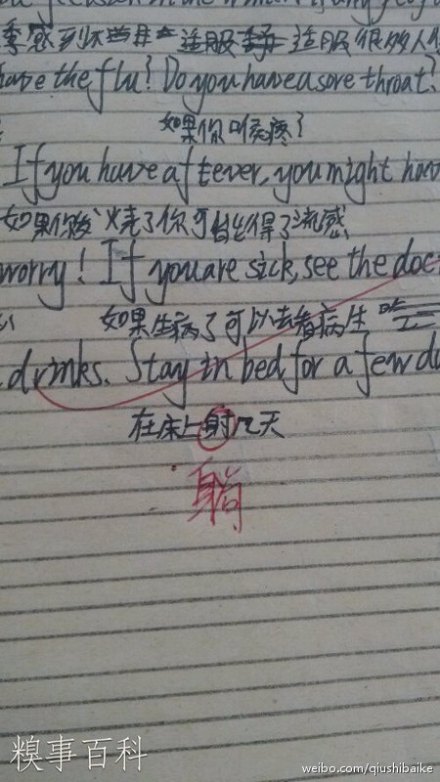 季感到不 适服 适服很多人
have the flu? Do you have a sore throat?
如果你喉疼?
If you have a f fever, you might hav
如果你发火烧了你可能生得了流感
worry! If you are sick, see the doc
如果生病了可以去看病生
drinks. Stay in bed for a few da
在床上射几天
躺
糗事百科
weibo.com/qiushibaike